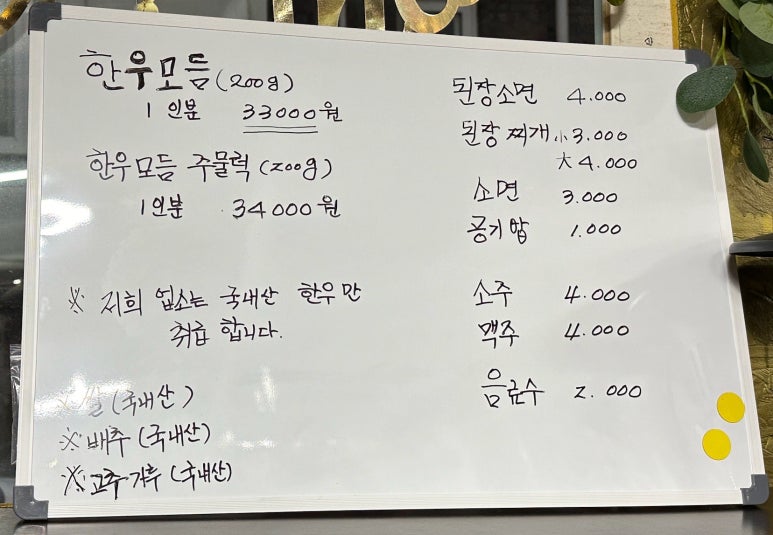 한우모듬(200g)
1인분 33000원
한우모듬 주물럭(200g)
1인분 34000원
※ 저희 업소는 국내산 한우만
취급 합니다.
※ 쌀(국내산)
※ 배추(국내산)
※ 고추가루(국내산)
된장소면 4.000
된장찌개 小 3.000
大 4.000
소면 3.000
공기밥 1.000
소주 4.000
맥주 4.000
음료수 2.000